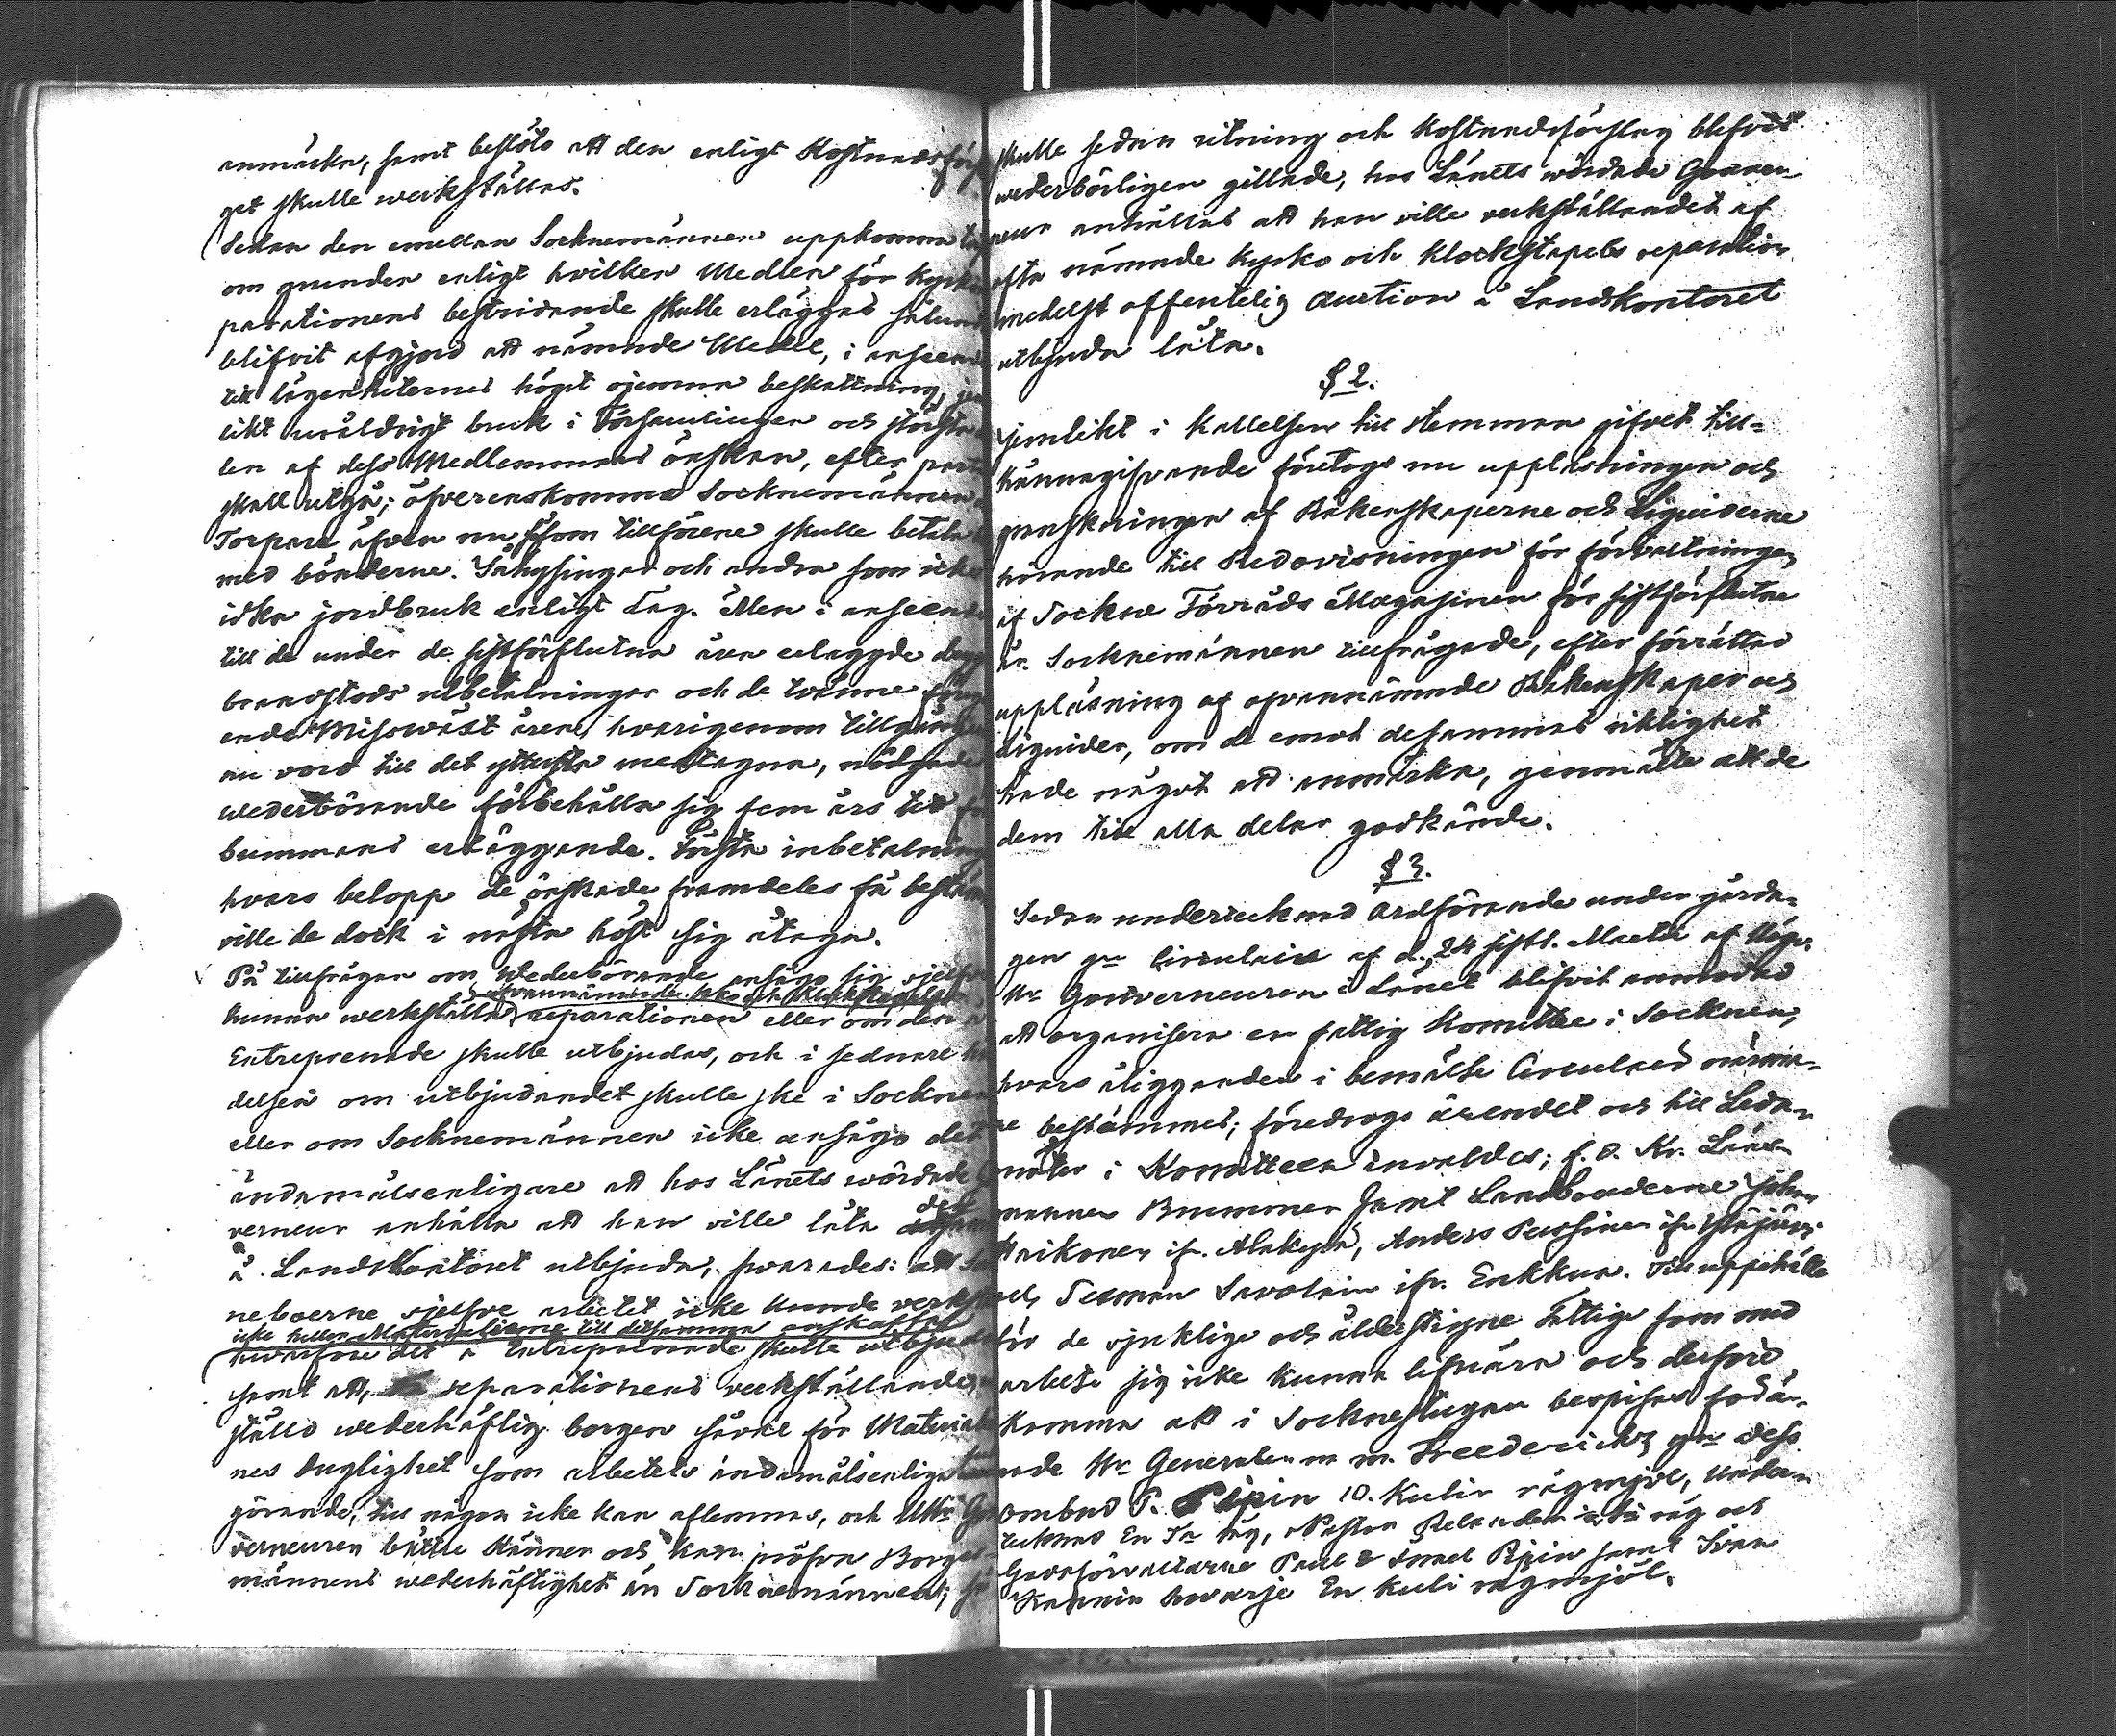 anmärka, samt beslöto att den enligt Kostnadsförsla
get skulle werkställas.
Sedan den emellan Socknemännen uppkomna
om grunden enligt hvilken Medlen för Kyrko
parationens bestridande skulle erläggas sålunda
blifvit afgjord att nämnde Medel, i anseende
till lägenheternes högst ojemna beskattning,
likt uråldrigt bruk i Församlingen och största
len af dess Medlemmars önskan, efter
skall utgå; öfverenskommo Socknemännen
Torpare äfven nu såsom tillförene skulle betala
med bönderne. Inhysingar och andra som icke
idka jordbruk enligt Lag. Men i anseende
till de under de sistförflutna åren erlaggde
brandstods utbetalningar och de tvänne
ende Missväxt åren, hvarigenom tillgångar
nu voro till det yttersta medtagna, nödgades
wederbörande förbehålla sig fem års tid
summans erläggande. Första inbetalning
hvars belopp de önskade framdeles få bestäm
ville de dock i nästa höst sig åtaga.
På tillfrågan om Wederbörande ansågo sig sjelfva
ofvannämnde och Klockstapels
kunna werkställa reparationen eller om den
Entreprenade skulle utbjudas, och i sednare
delsen om utbjudandet skulle ske i Socknen
eller om Socknemännen icke ansågo det
ändamålsenligare att hos Länets wördade
verneur anhålla att han ville låta det
å Landskontoret utbjuda; svarades: att
neboerne sjelfve arbetet icke kunde verkst
icke heller Materialierne till detsamma anskaffas
hvarföre det å Entreprenade skulle utbjudas
samt att reparationens verkställande,
ställd wederhäftig borgen såväl för Material
nes duglighet som arbetets ändamålsenliga
görande, till någon icke kan aflemnas, och Herr Gou
verneuren bättre känner och kan pröfva Borges
männens wederhäftighet än Socknemännen; så
skulle sedan ritning och Kostnadsförslag blifvit
wederbörligen gillade, hos Länets wördade Gouver
neur anhållas att han wille verkställandet af
ofta nämnde Kyrko och Klockstapels reparation
medelst offentelig Auction å Landskontoret
utbjuda låta.
§ 2.
Jemlikt i Kallelsen till stemman gifvet till-
kännagifvande företogs nu uppläsningen och
granskningen af Räkenskaperne och Liquiderne
hörande till Redovisningen för förvaltningen
af Sockne Förråds Magasinen för sistförflutne
år. Socknemännen tillfrågade, efter förrättad
uppläsning af ofvannämnde Räkenskaper och
Liquider, om de emot desammas riktighet
hade något att anmärka, genmälte att de
dem till alla delar godkände.
§ 3.
Sedan undertecknad Ordförande under gårda-
gen gm Circulaire af d. 24 sistl. Martii af Höga
Hr Gouverneuren i Länet blifvit anmodad
att organisera en fattig Komittee i Socknen,
hvars åligganden i bemälte Circulaire närma-
re bestämmes; föredrogs ärendet och till Leda-
möter i Komitteen invaldes; f. d. Kr. Läns-
mannen Brummer samt Landbönderne Johan
ifr. Alakylä, Anders Pussinen ifr.
och Seaman Savolain ifr. Enkkua. Till uppehälle
för de sjuklige och ålderstigne Fattige som med
arbete sig icke kunna lifnära och derföre
komma att i Sockenstugan bespisas fodå-
rade Hr Generalen m m. Freedericks gm dess
ombud P. Pipin 10. kulir rågmjöl, Under-
tecknad En Ta råg, Pastor Relander råg och
Godsförvaltarne Paul & Pipin samt Ivan
hvarje En Kuli rågmjöl.